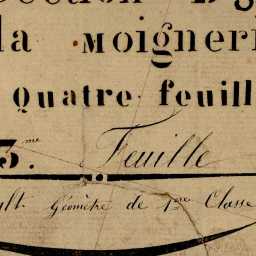 la moigneri
Quatre feuill
3.me Feuille
ult. Géomètre de 1ere Classe